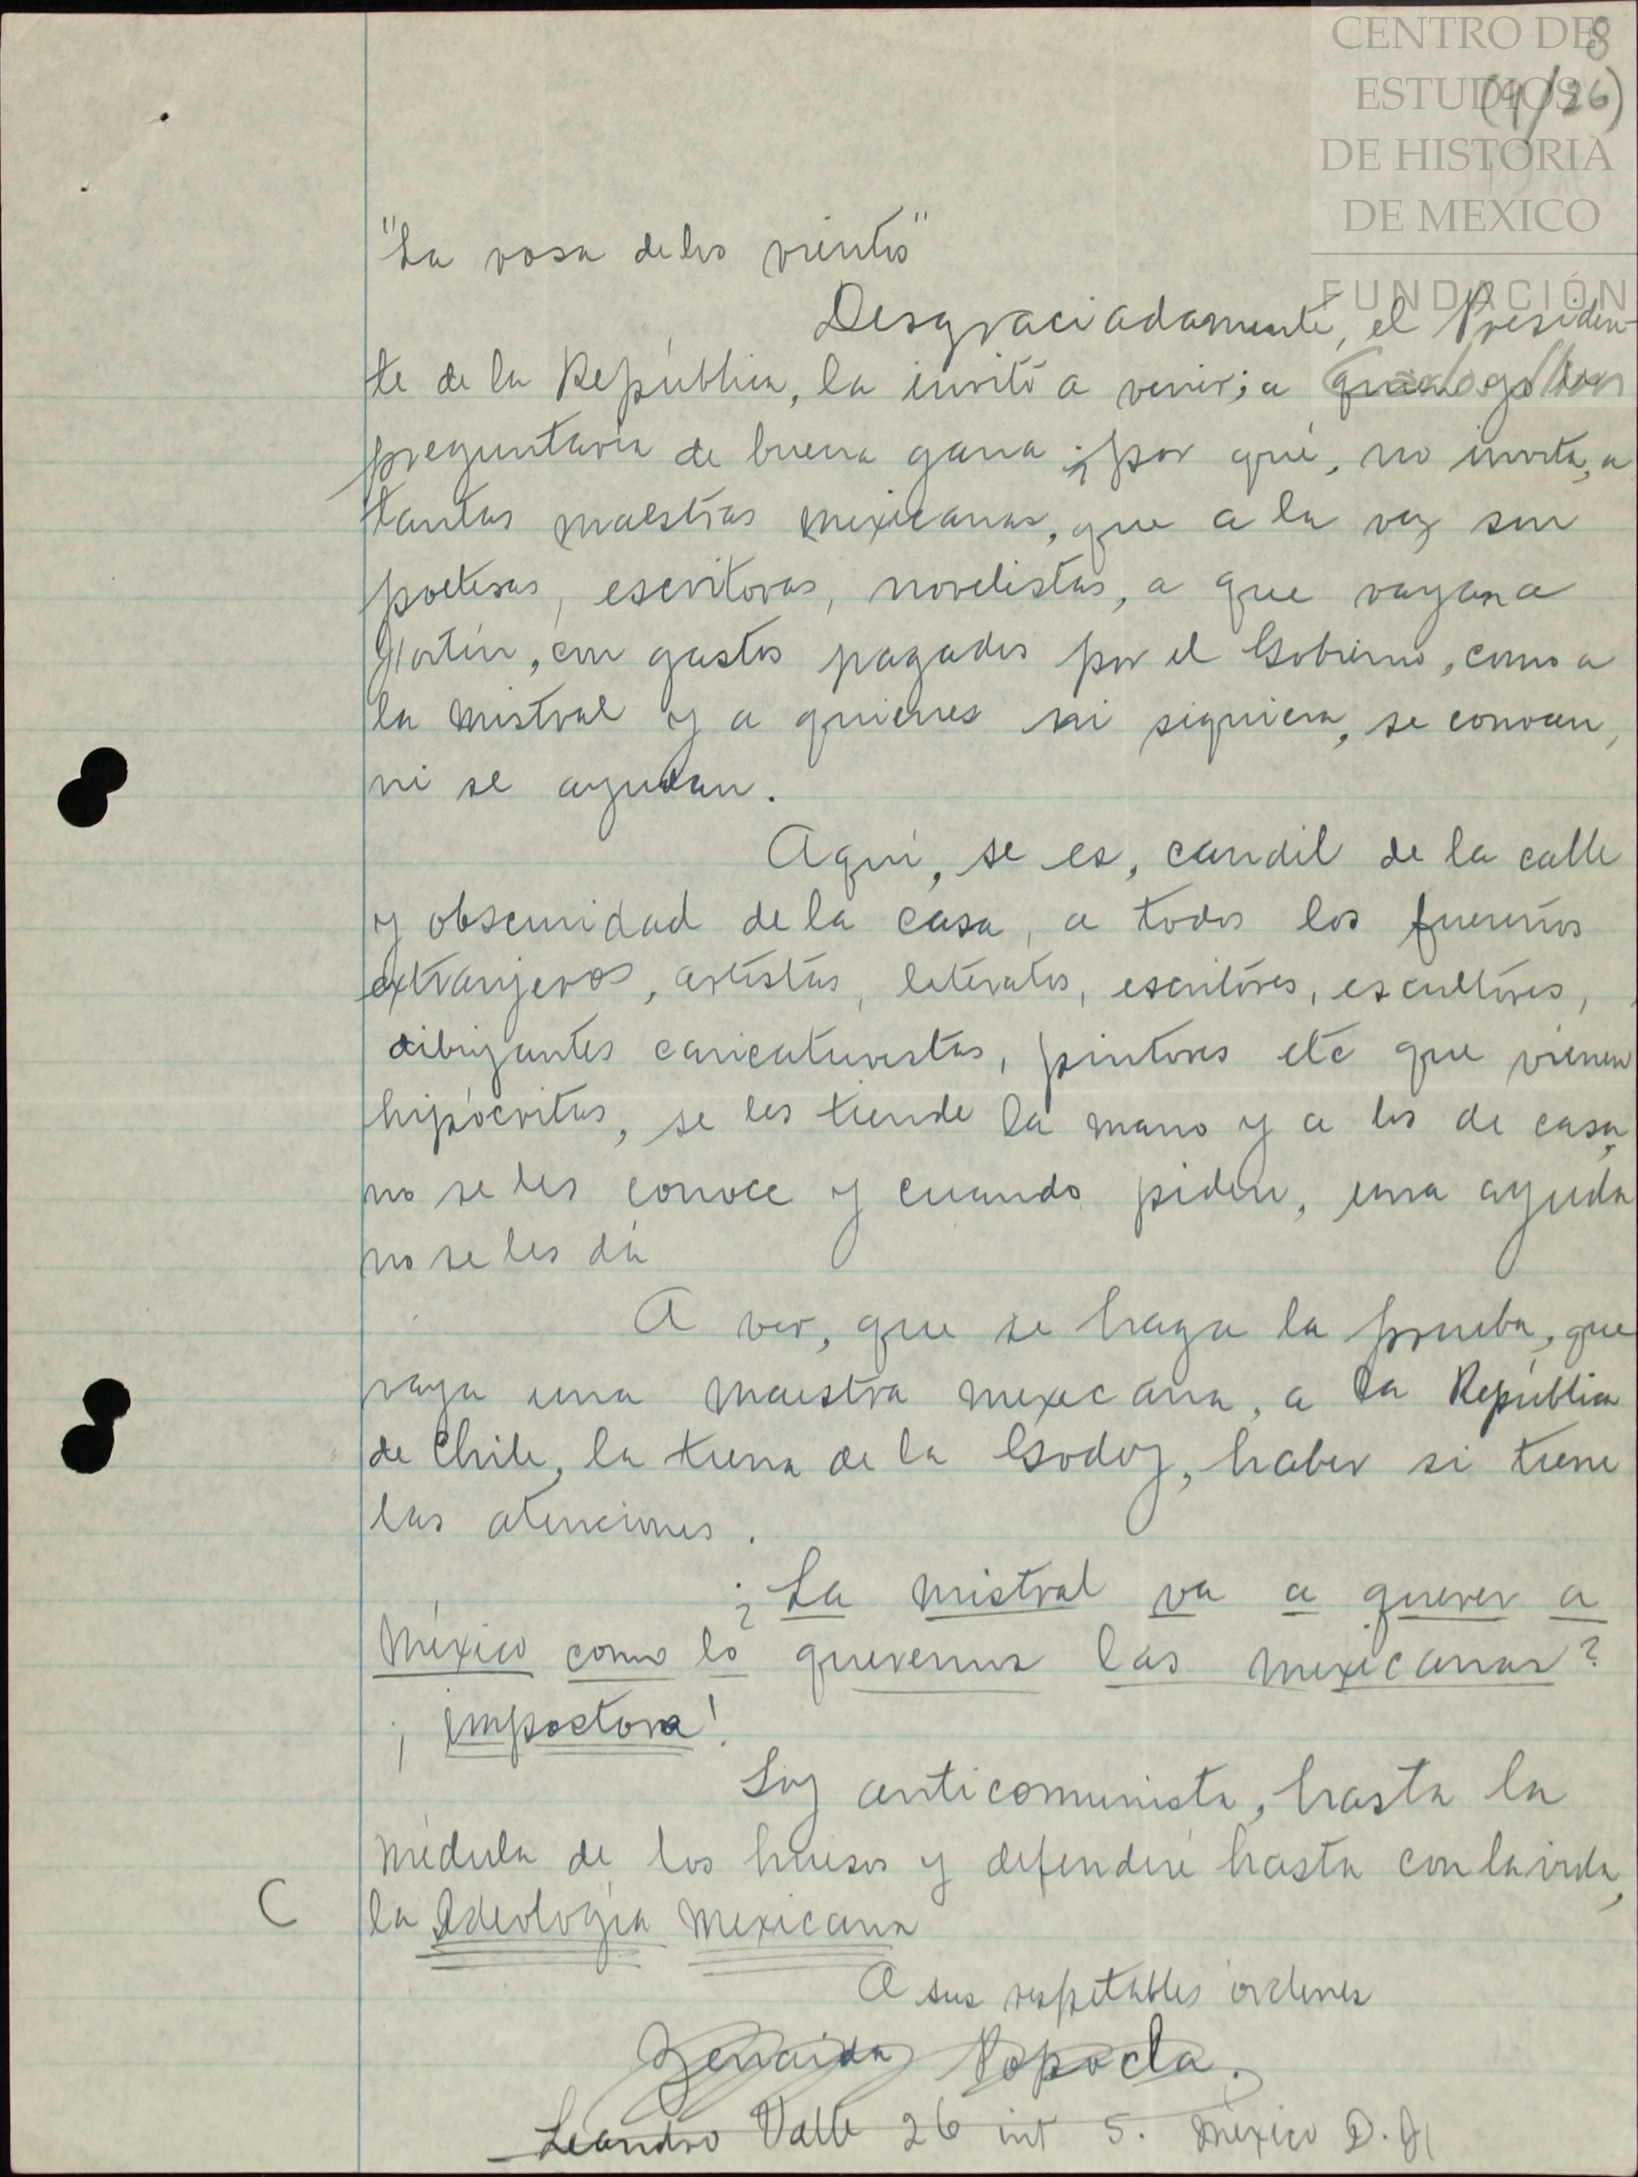 CENTRO DE
ESTUDIOS
DE HISTORIA
DE MEXICO
FUNDACIÓN
8
(4/26)
"La rosa de los vientos"
Desgraciadamente, el Presiden-
te de la República, la invitó a venir; a quien yo le
preguntaría de buena gana ¿por qué, no invita, a
tantas maestras mexicanas, que a la vez son
poetisas, escritoras, novelistas, a que vayan a
Fortín, con gastos pagados por el Gobierno, como a
la Mistral y a quienes ni siquiera, se conocen,
ni se ayudan.
Aquí, se es, candil de la calle
y obscuridad de la casa, a todos los fuereños
extranjeros, artistas, literatos, escritores, escultores,
dibujantes caricaturistas, pintores etc que vienen
hipócritas, se les tiende la mano y a los de casa,
no se les conoce y cuando piden, una ayuda
no se les dá
A ver, que se haga la prueba, que
vaya una maestra mexicana, a la República
de Chile, la tierra de la Godoy, haber si tiene
las atenciones.
¿La Mistral va a querer a
México como lo queremos las mexicanas?
¡impostora!
Soy anticomunista, hasta la
médula de los huesos y defenderé hasta con la vida,
la Ideología Mexicana
C
A sus respetables órdenes
Zenaida Popocla.
Leandro Valle 26 int 5. México D.F.